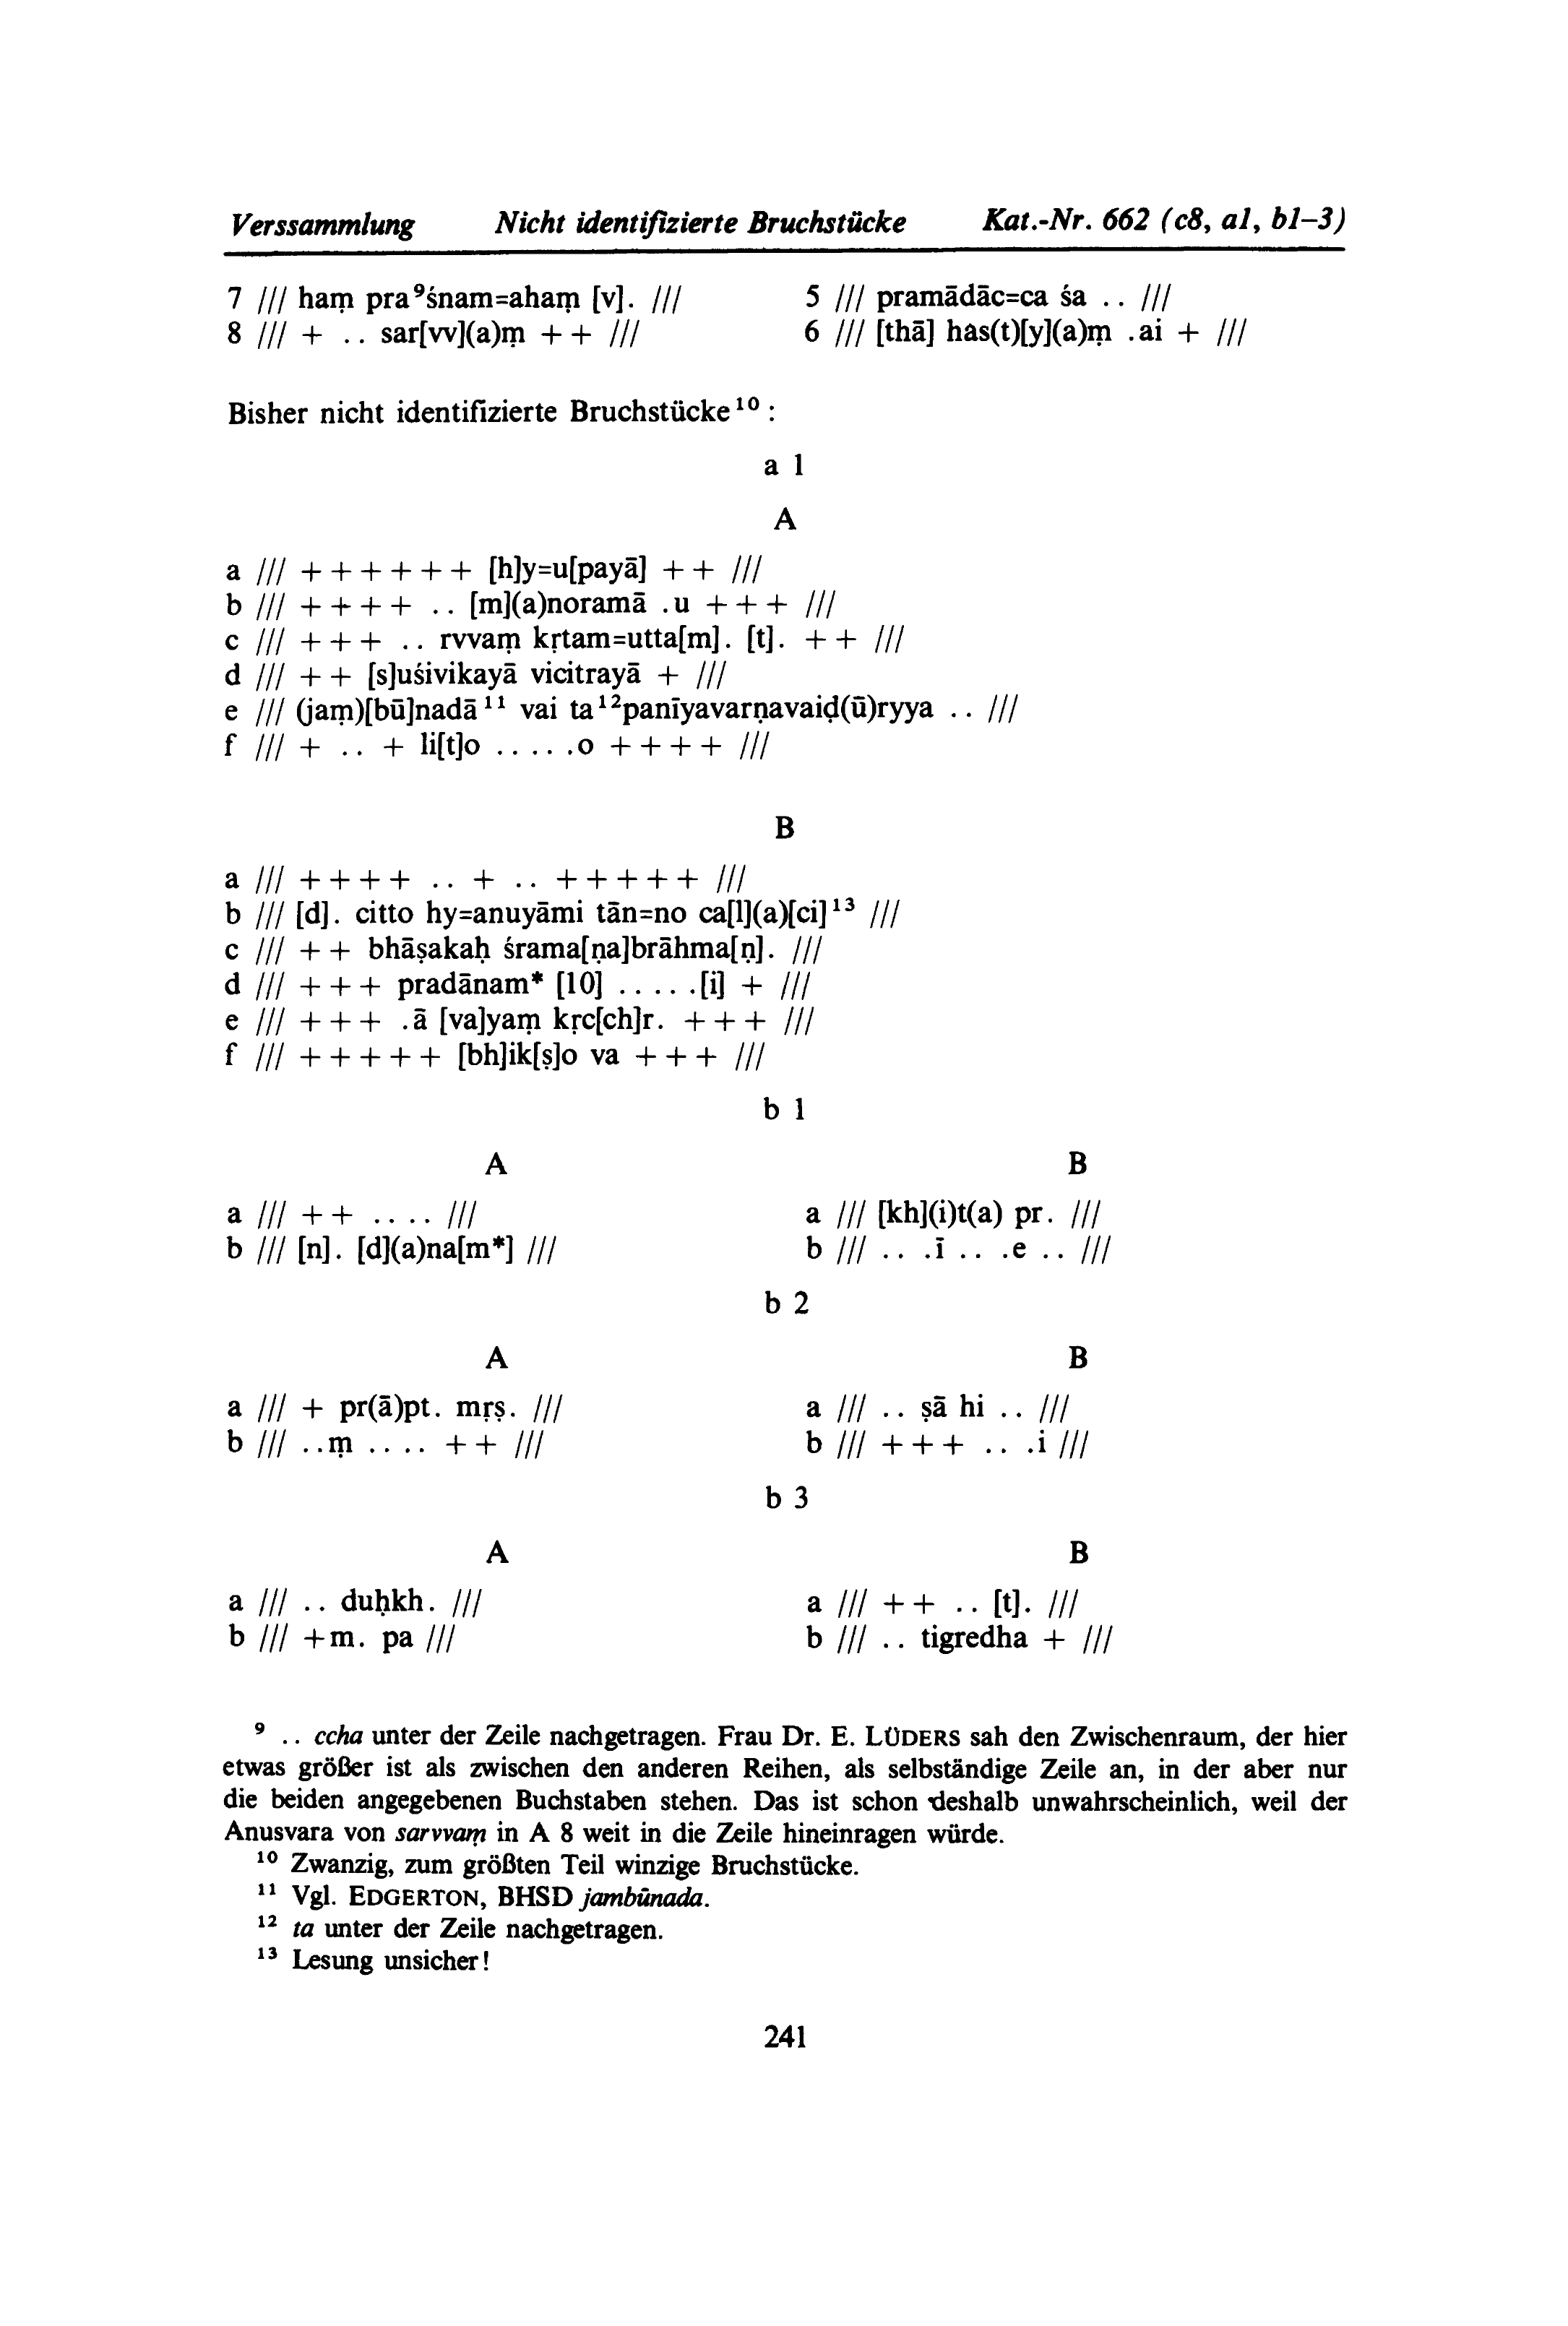 Verssammlung Nicht identifizierte Bruchstücke Kat.-Nr. 662 (c8, a1, b1–3)
7 /// haṃ pra⁹śnam=ahaṃ [v]. ///
8 /// + .. sar[vv](a)ṃ + + ///
5 /// pramādāc=ca śa .. ///
6 /// [thā] has(t)[y](a)ṃ .ai + ///
Bisher nicht identifizierte Bruchstücke¹⁰ :
a 1
A
a /// + + + + + + [h]y=u[payā] + + ///
b /// + + + + .. [m](a)noramā .u + + + ///
c /// + + + .. rvvaṃ kṛtam=utta[m]. [t]. + + ///
d /// + + [s]uśivikayā vicitrayā + ///
e /// (jaṃ)[bū]nadā¹¹ vai ta¹²panīyavarṇavaiḍ(ū)ryya .. ///
f /// + .. + li[t]o .. .. .o + + + + ///
B
a /// + + + + .. + .. + + + + + ///
b /// [d]. citto hy=anuyāmi tān=no ca[l](a)[ci]¹³ ///
c /// + + bhāṣakaḥ śrama[ṇa]brāhma[ṇ]. ///
d /// + + + pradānam* [10] .. .. .[i] + ///
e /// + + + .ā [va]yaṃ kṛc[ch]r. + + + ///
f /// + + + + + [bh]ik[ṣ]o va + + + ///
b 1
A B
a /// + + .. .. ///
b /// [n]. [d](a)na[m*] ///
a /// [kh](i)t(a) pr. ///
b /// .. .ī .. .e .. ///
b 2
A B
a /// + pr(ā)pt. mṛṣ. ///
b /// ..ṃ .. .. + + ///
a /// .. ṣā hi .. ///
b /// + + + .. .i ///
b 3
A B
a /// .. duḥkh. ///
b /// +m. pa ///
a /// + + .. [t]. ///
b /// .. tigredha + ///
⁹ .. ccha unter der Zeile nachgetragen. Frau Dr. E. LÜDERS sah den Zwischenraum, der hier
etwas größer ist als zwischen den anderen Reihen, als selbständige Zeile an, in der aber nur
die beiden angegebenen Buchstaben stehen. Das ist schon deshalb unwahrscheinlich, weil der
Anusvara von sarvvaṃ in A 8 weit in die Zeile hineinragen würde.
¹⁰ Zwanzig, zum größten Teil winzige Bruchstücke.
¹¹ Vgl. EDGERTON, BHSD jambūnada.
¹² ta unter der Zeile nachgetragen.
¹³ Lesung unsicher!
241